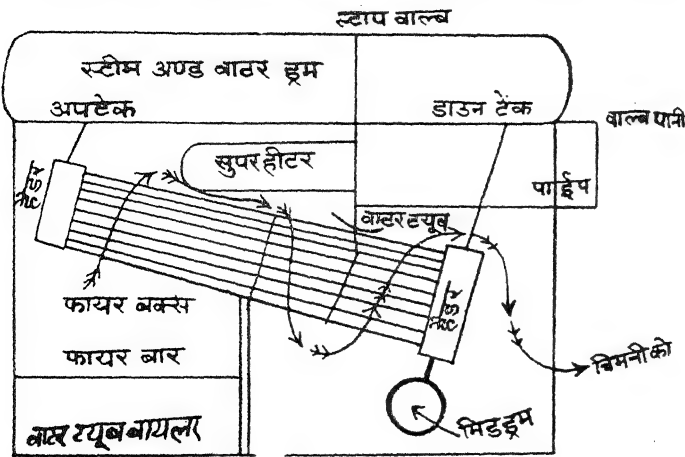 स्टाप वाल्ब
स्टीम अण्ड वाटर ड्रम
अपटेक
डाउन टेंक
वाल्ब पानी
सुपर हीटर
पाईप
हैडर
वाटर टयूब
फायर बक्स
हैडर
फायर बार
चिमनी को
वाटर टयूब बायलर
मिड ड्रम